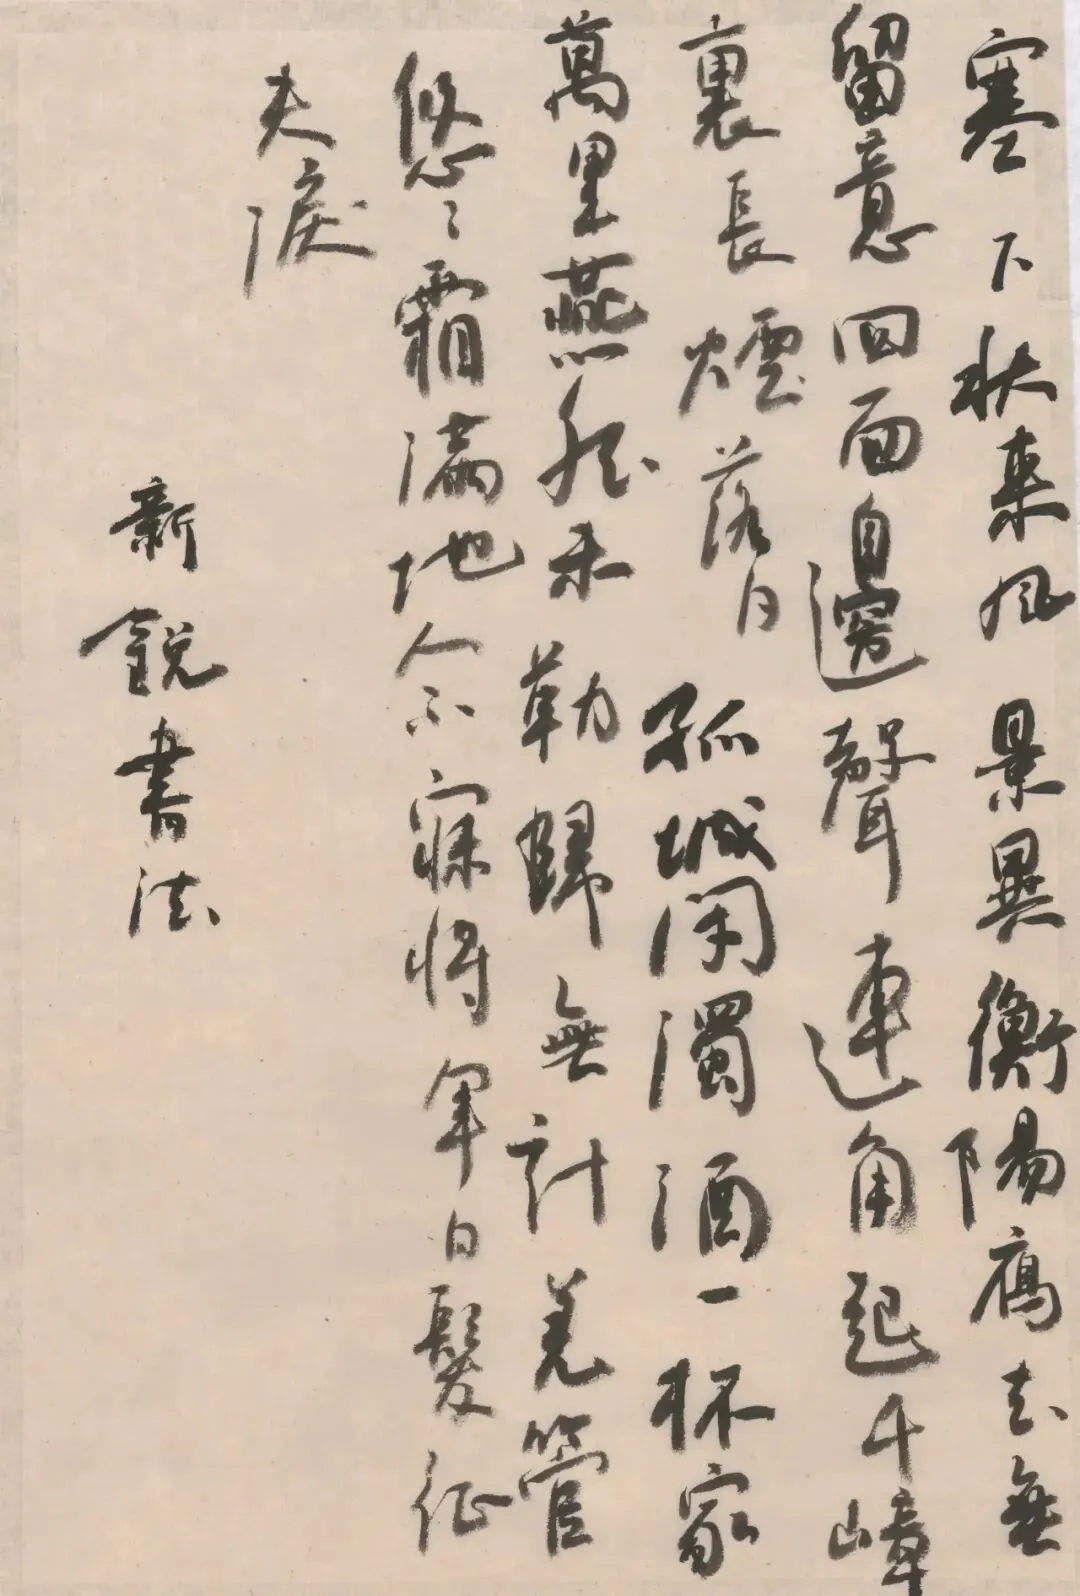 塞下秋來風景異衡陽雁去無
留意四面邊聲連角起千嶂
裏長煙落日孤城閉濁酒一杯家
萬里燕然未勒歸無計羌管
悠〻霜滿地人不寐將軍白髮征
夫淚
新銳書法